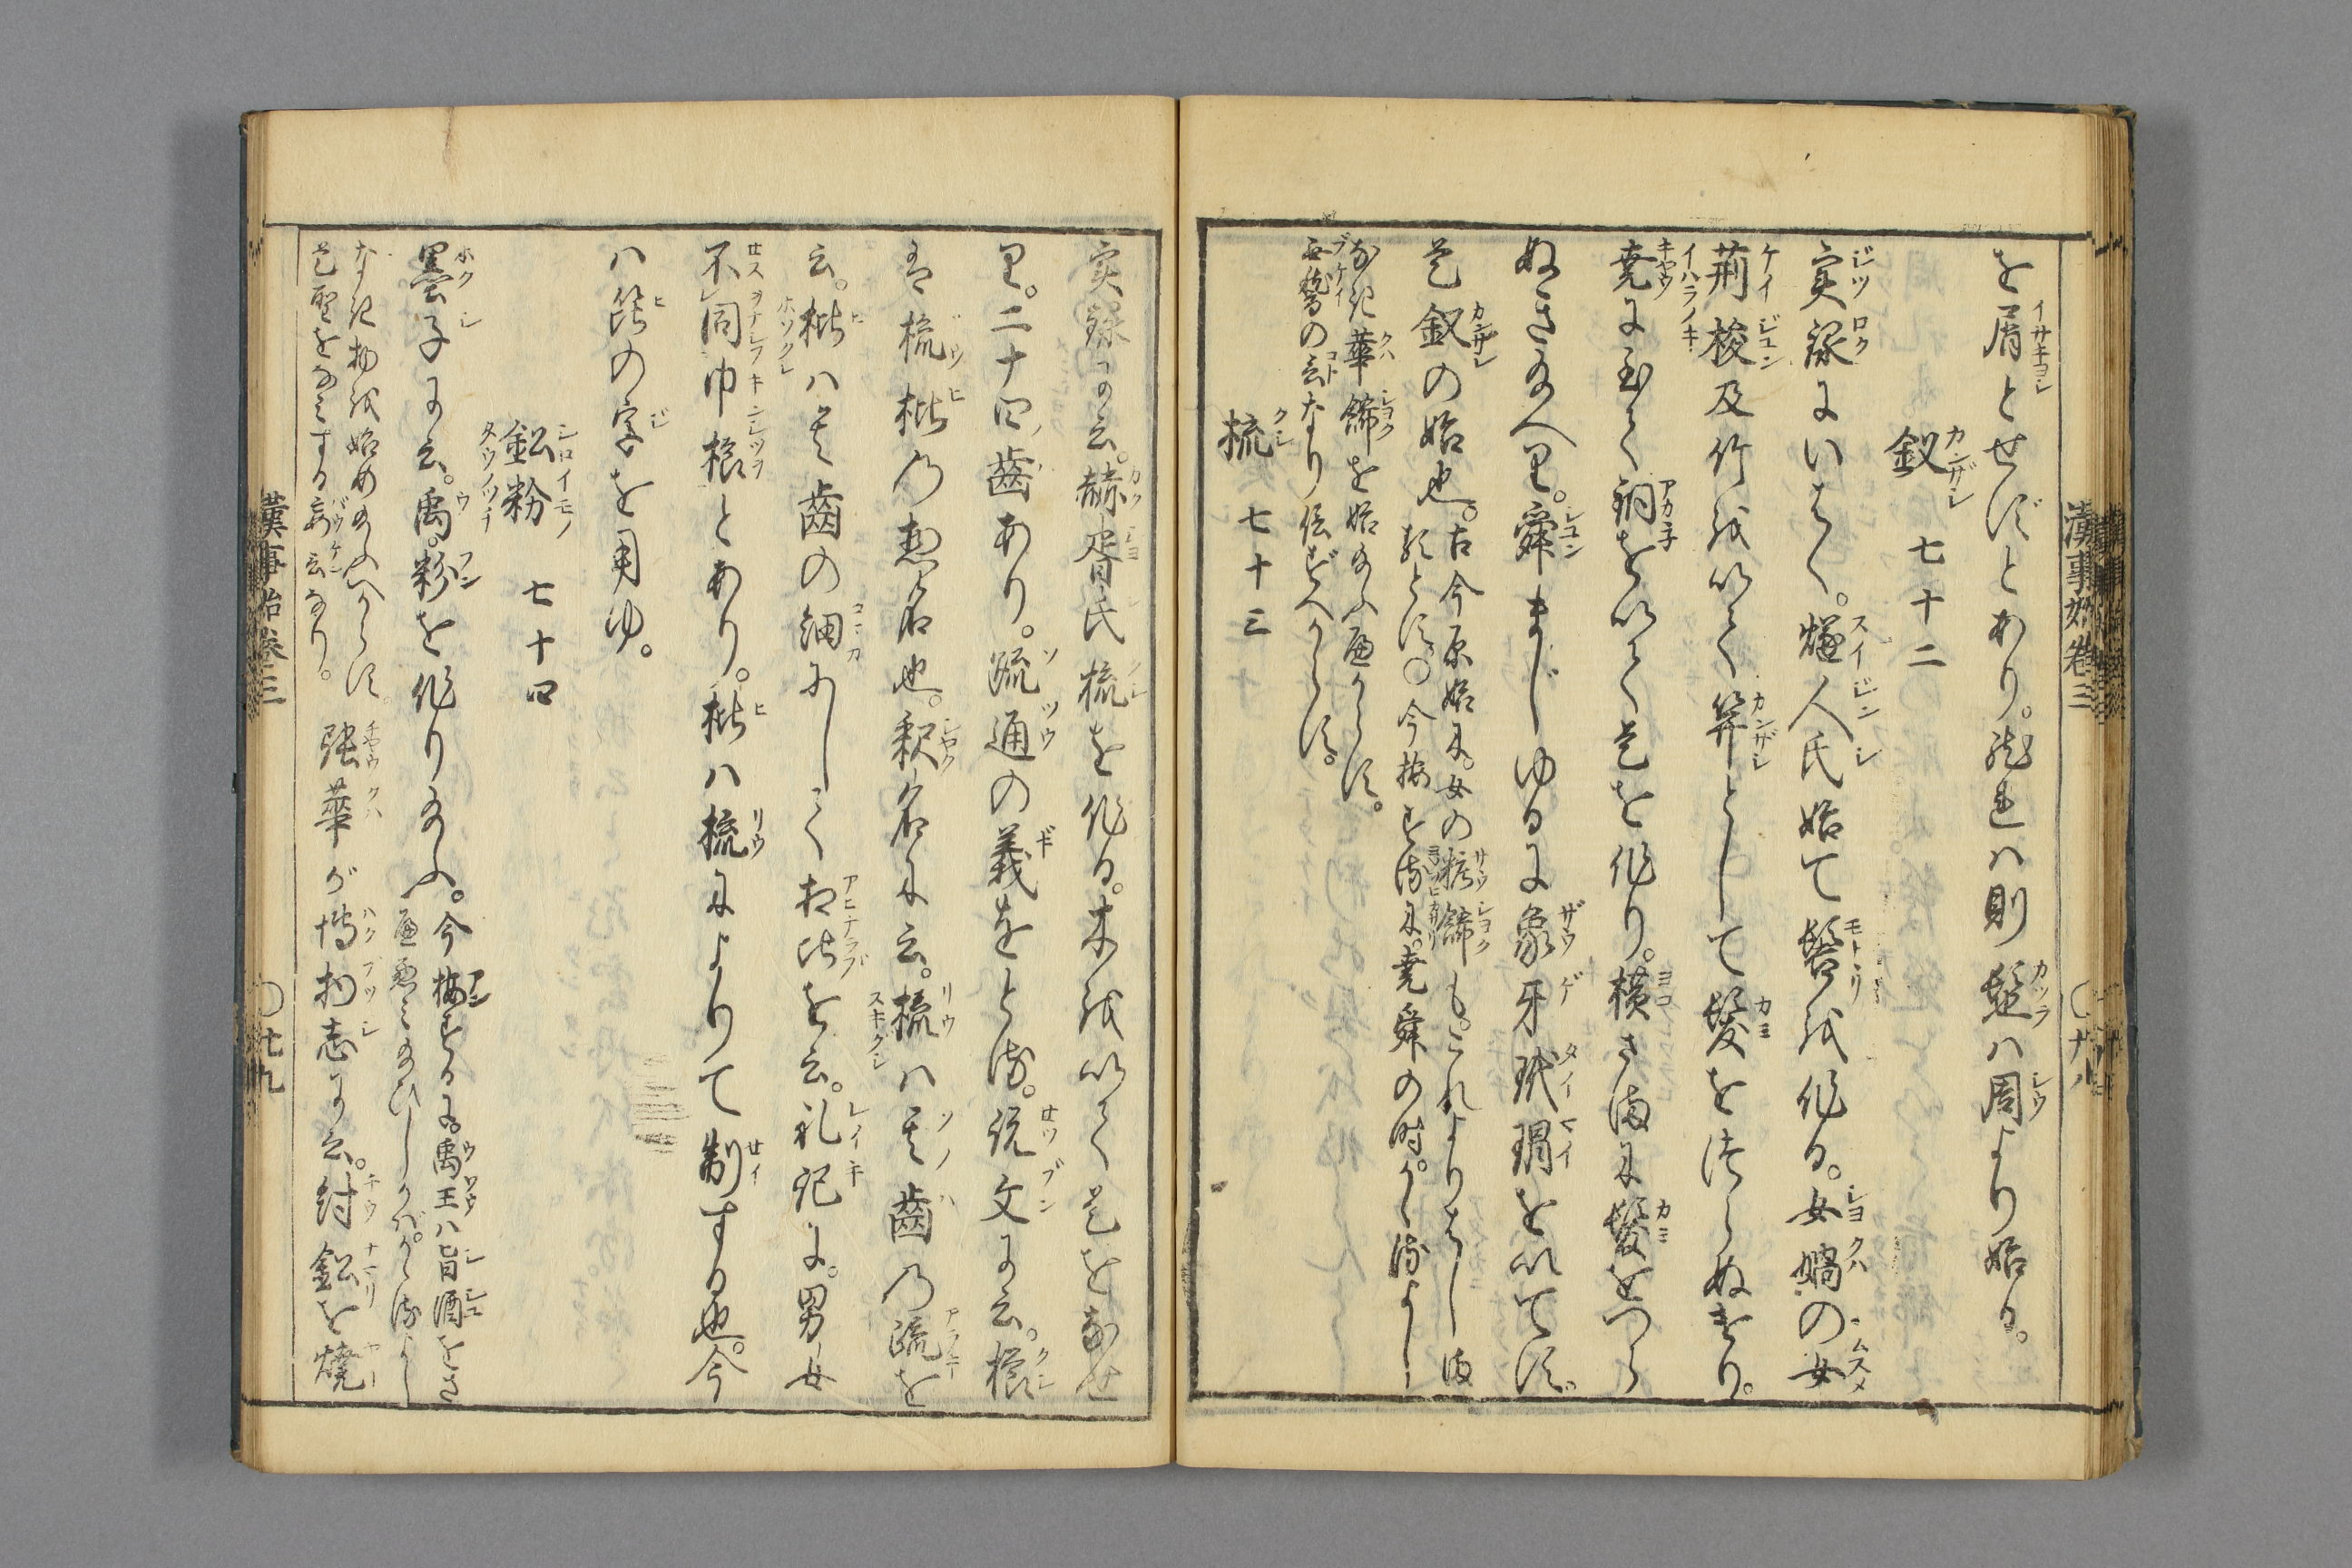 を屑とせずとあり。然れハ則髢ハ周より始る。
釵 七十二
実録にいはく。燧人氏始て髻を作る。女媧の女
荊梭及竹を以て笄として髪をつらぬけり。
堯に至て銅を以て是を作り。横さまに髪をつら
ぬき給へり。舜ましゆるに象牙玳瑁を以てす。
是釵の始也。古今原始に。女の粧飾も。これよりはしま
ると。○今按ずるに。堯舜の時かゝるよし
なき華飾を始給ふ可からず。
無稽の言なり信ずべからず。
梳 七十三
実録に云。赫胥氏梳を作る。木を以て是をなせ
り。二十四歯あり。疏通の義をとる。説文に云。櫛
ハ梳枇の惣名也。釈名に云。梳ハ其歯の疏を
云。枇ハ其歯の細にして相比を云。礼記に。男女
不同巾櫛とあり。枇ハ梳によりて制する也。今
ハ篦の字を用ゆ。
鉛粉 七十四
墨子に云。禹。粉を作り給ふ。今按ずるに。禹王ハ旨酒をさ
へ悪み給ひしかば。かゝるよし
なき物を始め給ふべからず。
是聖をなみする妄言なり。
張華が博物志に云。紂鉛を焼
漢事始巻三
〇廿八
漢事始巻三
〇廿九